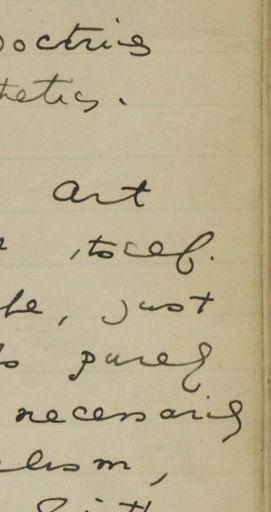 Doctrines
thetics.
Art
itself.
life, just
purely
necessarily
alism,